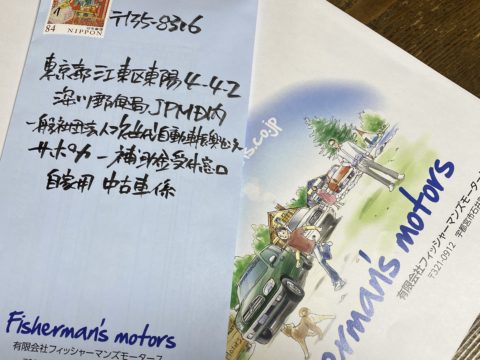 84
NIPPON
〒135-8306
東京都江東区東陽4-4-2
深川郵便局JPMD内
一般社団法人次世代自動車振興センター
サポカー補助金受付窓口
自家用 中古車係
Fisherman's motors
有限会社フィッシャーマンズモータース
s.co.jp
erman's motors
有限会社フィッシャーマンズモータース
〒321-0912 宇都宮市石井